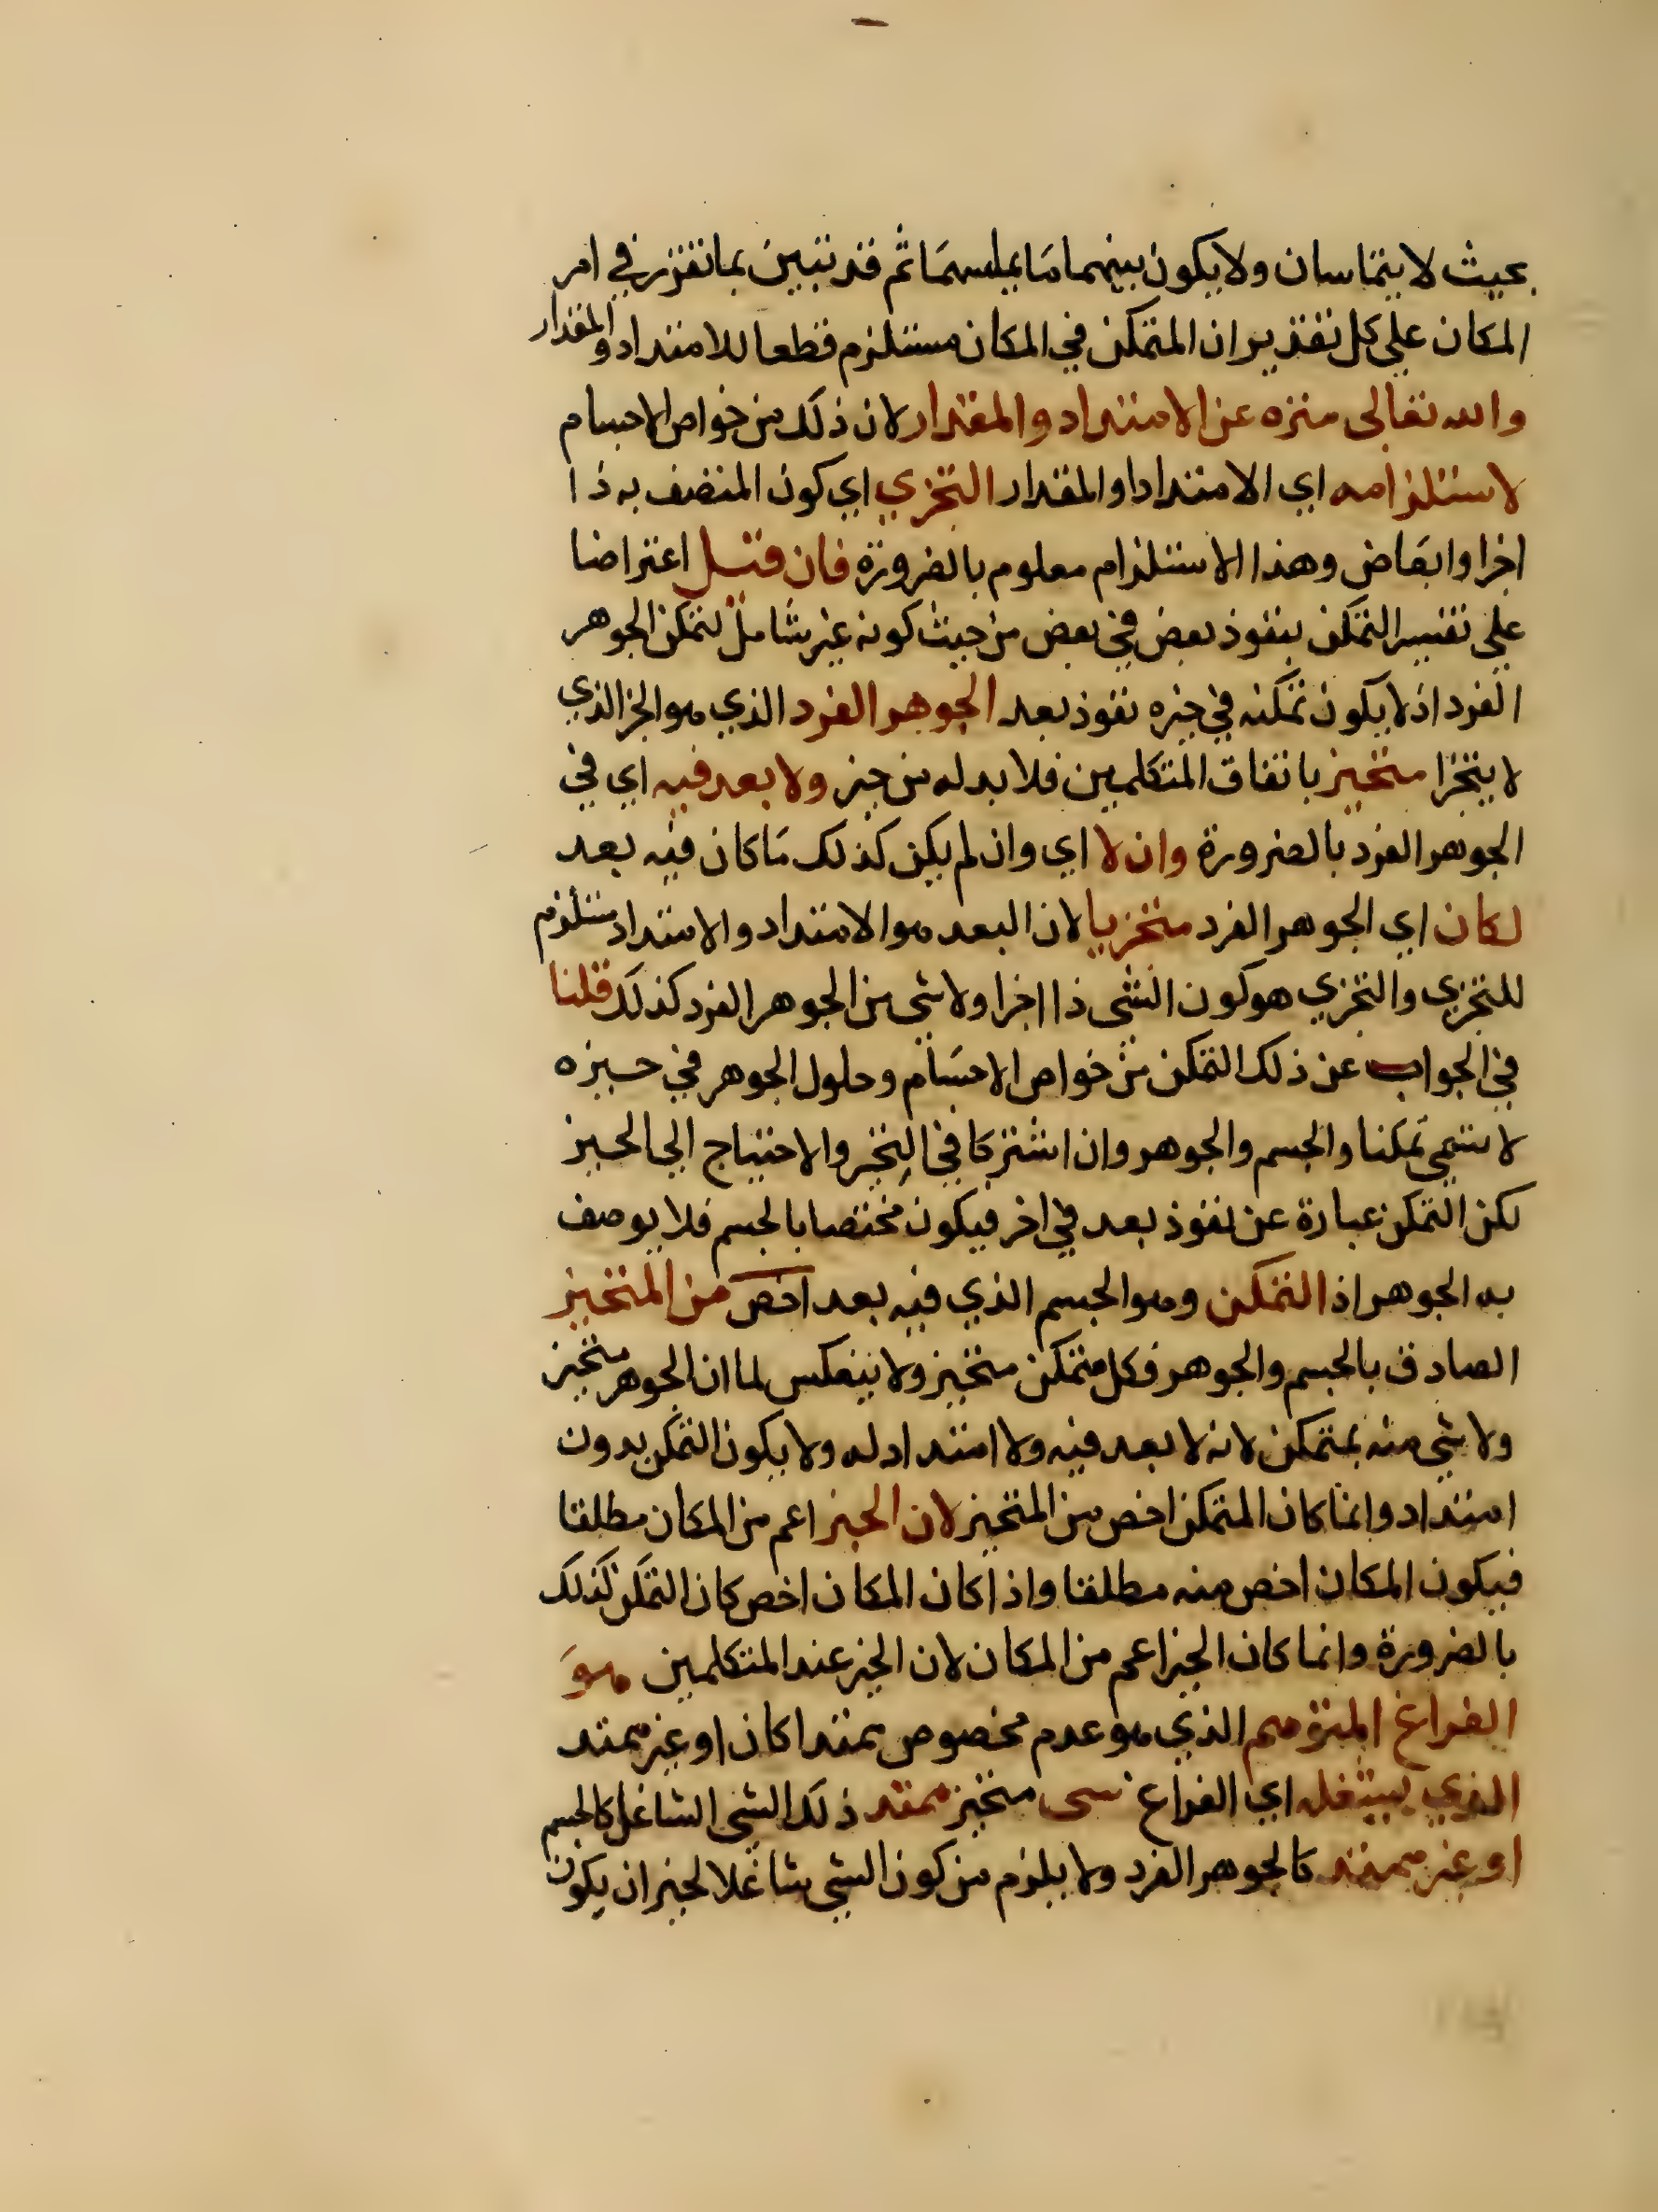 بحيث لا يتماسان ولا يكون بينهما ما يماسهما ثم قد تبين بما تقرر في امر
المكان علي كل تقدير ان المتمكن في المكان مستلزم قطعا للامتداد والمقدار
والله تعالى منزه عن الامتداد والمقدار لان ذلك من خواص الاجسام
لاستلزامه اي الامتداد او المقدار التجزي اي كون المتصف به ذا
اجزا وابعاض وهذا الاستلزام معلوم بالضرورة فان قيل اعتراضا
علي تفسير التمكن بنفوذ بعض في بعض من حيث كونه غير شامل لتمكن الجوهر
الفرد اذ لا يكون تمكنه في حيزه نفوذ بعد الجوهر الفرد الذي هو الجز الذي
لا يتجزا متحيز باتفاق المتكلمين فلا بد له من حيز ولا بعد فيه اي في
الجوهر الفرد بالضرورة وان لا اي وان لم يكن كذلك ما كان فيه بعد
لكان اي الجوهر الفرد متجزيا لان البعد هو الامتداد والامتداد مستلزم
للتجزي والتجزي هو كون الشي ذا اجزا ولا شي من الجوهر الفرد كذلك قلنا
في الجواب عن ذلك التمكن من خواص الاجسام وحلول الجوهر في حيزه
لا يسمي تمكنا والجسم والجوهر وان اشتركا في التحيز والاحتياج الي الحيز
لكن التمكن عبارة عن نفوذ بعد في اخر فيكون مختصا بالجسم فلا يوصف
به الجوهر اذ التمكن وهو الجسم الذي فيه بعد اخص من المتحيز
الصادق بالجسم والجوهر فكل متمكن متحيز ولا ينعكس لما ان الجوهر متحيز
ولا شي منه بمتمكن لانه لا بعد فيه ولا امتداد له ولا يكون التمكن بدون
امتداد وانما كان المتمكن اخص من المتحيز لان الحيز اعم من المكان مطلقا
فيكون المكان اخص منه مطلقا واذا كان المكان اخص كان التمكن كذلك
بالضرورة وانما كان الحيز اعم من المكان لان الحيز عند المتكلمين هو
الفراغ المتوهم الذي هو عدم مخصوص ممتدا كان او غير ممتد
الذي يشغله اي الفراغ شي متحيز ممتد ذلك الشي الشاغل كالجسم
او غير ممتد كالجوهر الفرد ولا يلزم من كون الشي شاغلا لحيز ان يكون